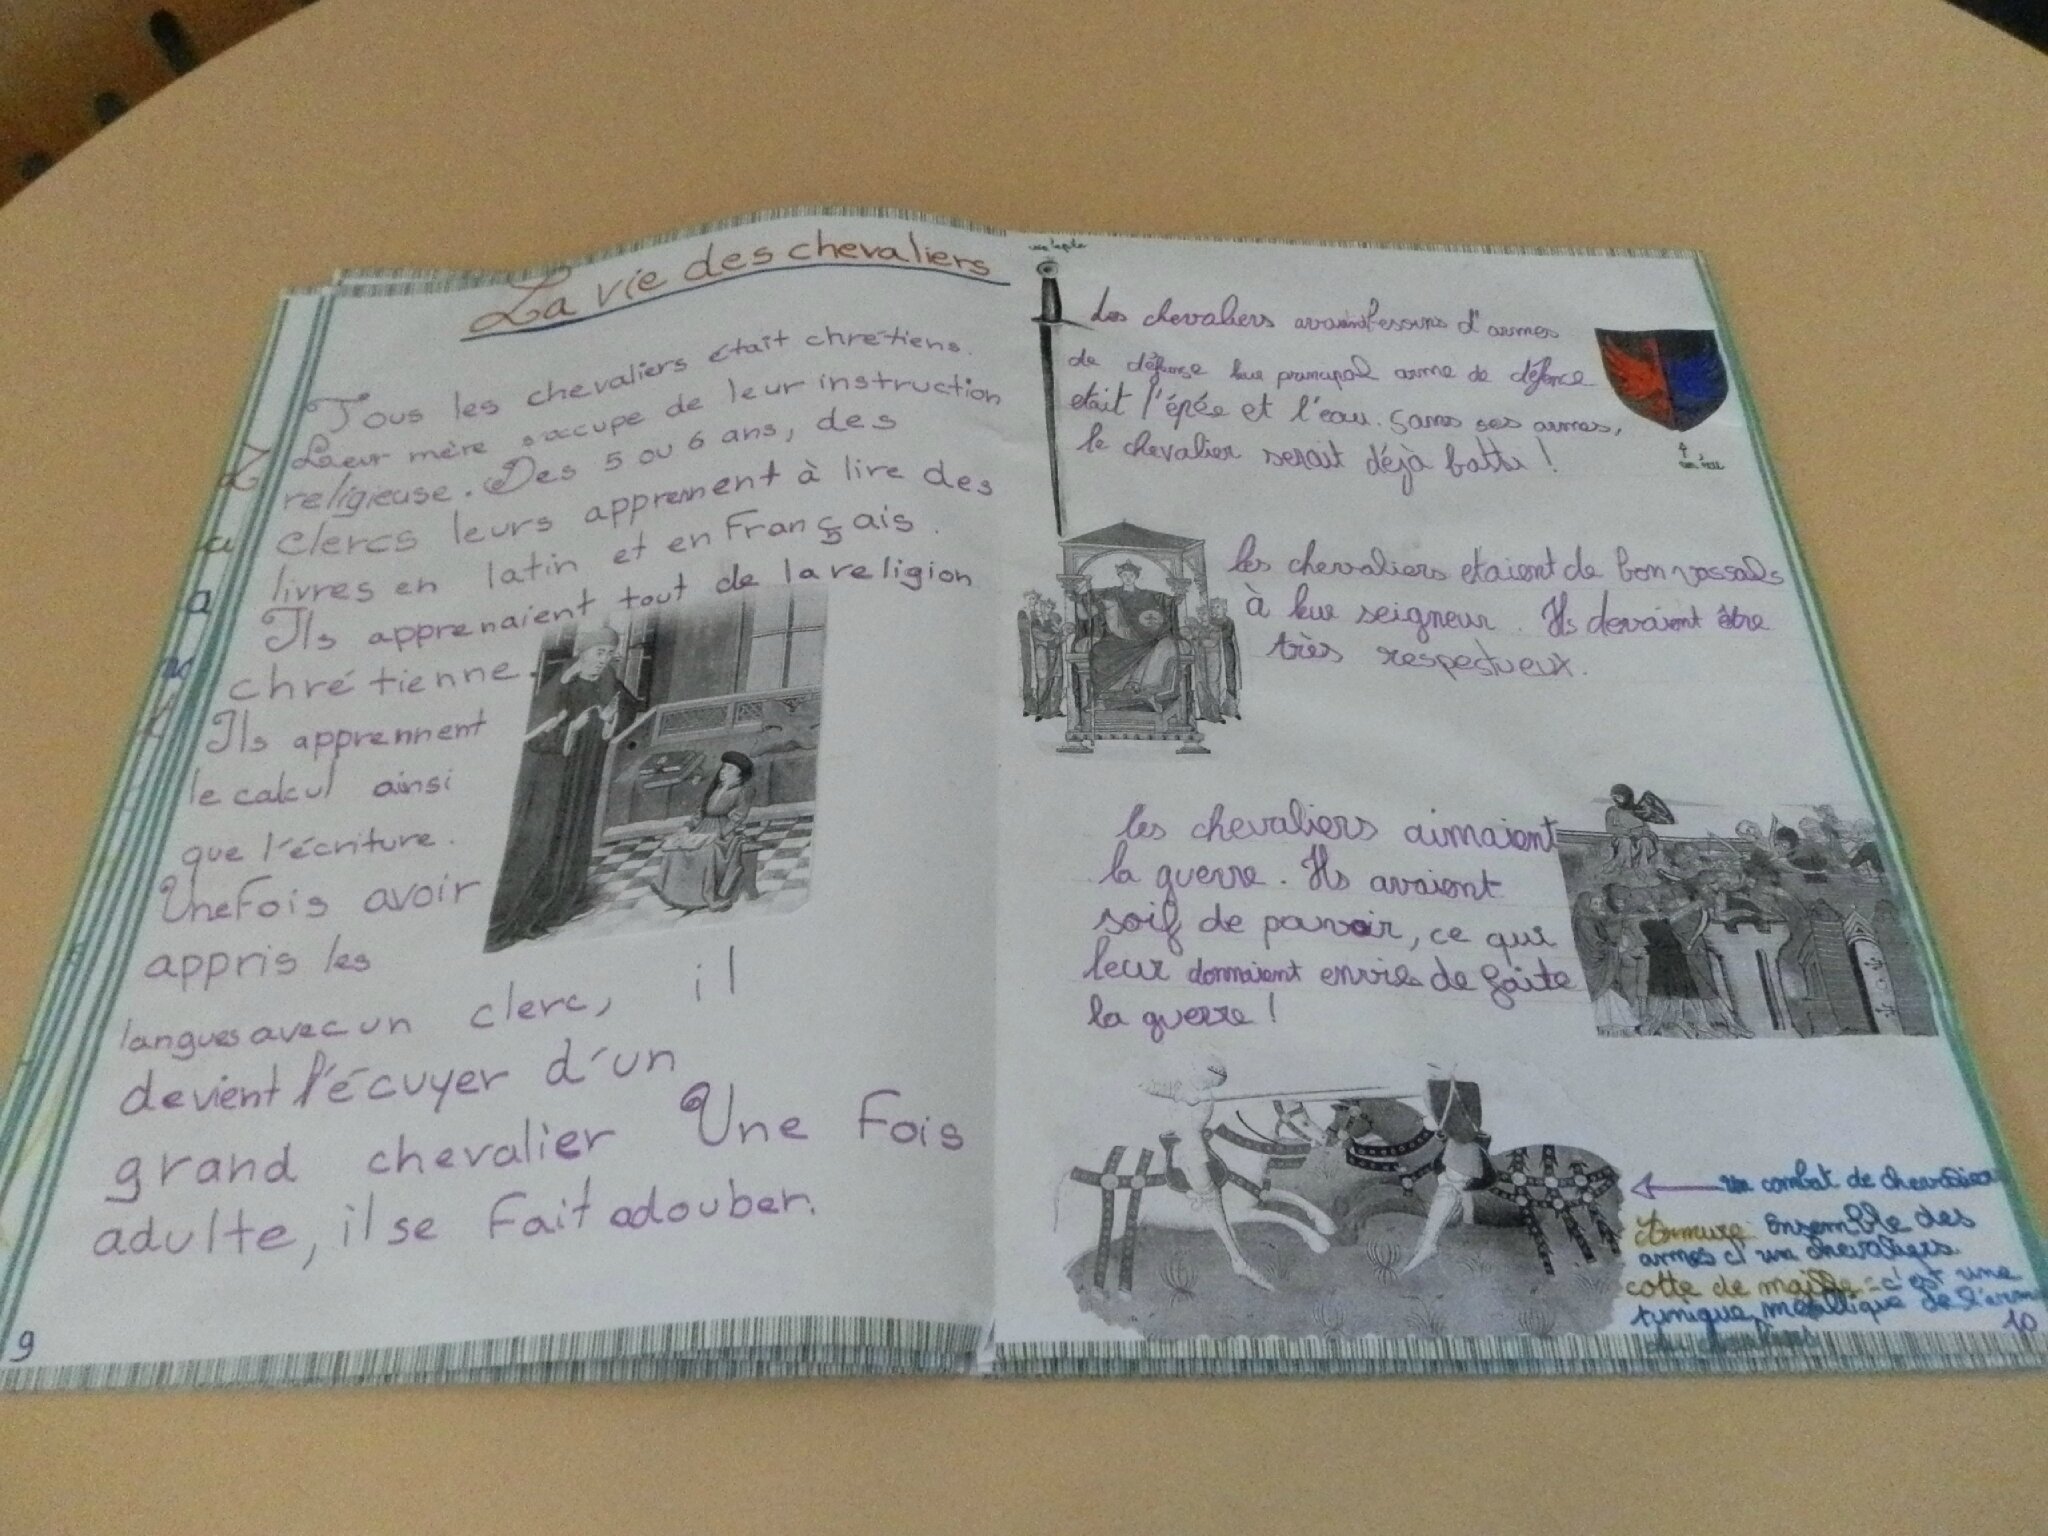 La vie des chevaliers
Tous les chevaliers était chrétiens.
Leur mère s'occupe de leur instruction
religieuse. Des 5 ou 6 ans, des
clercs leurs apprennent à lire des
livres en latin et en Français.
Ils apprenaient tout de la religion
chrétienne.
Ils apprennent
le calcul ainsi
que l'écriture.
Une Fois avoir
appris les
langues avec un clerc, il
devient l'écuyer d'un
grand chevalier Une Fois
adulte, il se Fait adouber.
9
Les chevaliers avaient besoins d'armes
de défense leur principal arme de défence
etait l'épée et l'écu. Sans ses armes,
le chevalier serait déjà battu !
les chevaliers etaient de bon vassals
à leur seigneur. Ils devaient être
très respectueux.
les chevaliers aimaient
la guerre. Ils avaient
soif de pouvoir, ce qui
leur donnaient envie de faite
la guerre !
un combat de chevaliers
Armure ensemble des
armes d'un chevaliers.
cotte de maille = c'est une
tunique métallique de
10